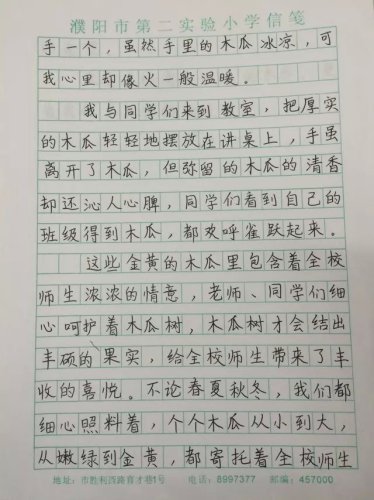 濮阳市第二实验小学信笺
手一个，虽然手里的木瓜冰凉，可
我心里却像火一般温暖。
我与同学们来到教室，把厚实
的木瓜轻轻地摆放在讲桌上，手虽
离开了木瓜，但弥留的木瓜的清香
却还沁人心脾，同学们看到自己的
班级得到木瓜，都欢呼雀跃起来。
这些金黄的木瓜里包含着全校
师生浓浓的情意，老师、同学们细
心呵护着木瓜树，木瓜树才会结出
丰硕的果实，给全校师生带来了丰
收的喜悦。不论春夏秋冬，我们都
细心照料着，个个木瓜从小到大，
从嫩绿到金黄，都寄托着全校师生
地址：市胜利西路育才巷1号 电话：8997377 邮编：457000